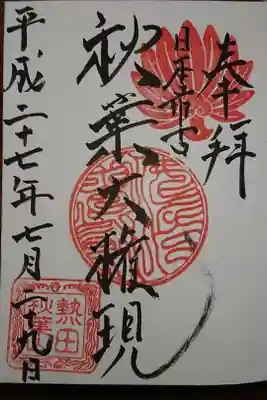 奉拝
日本最古
秋葉大権現
平成二十七年七月二十九日
熱田
秋葉